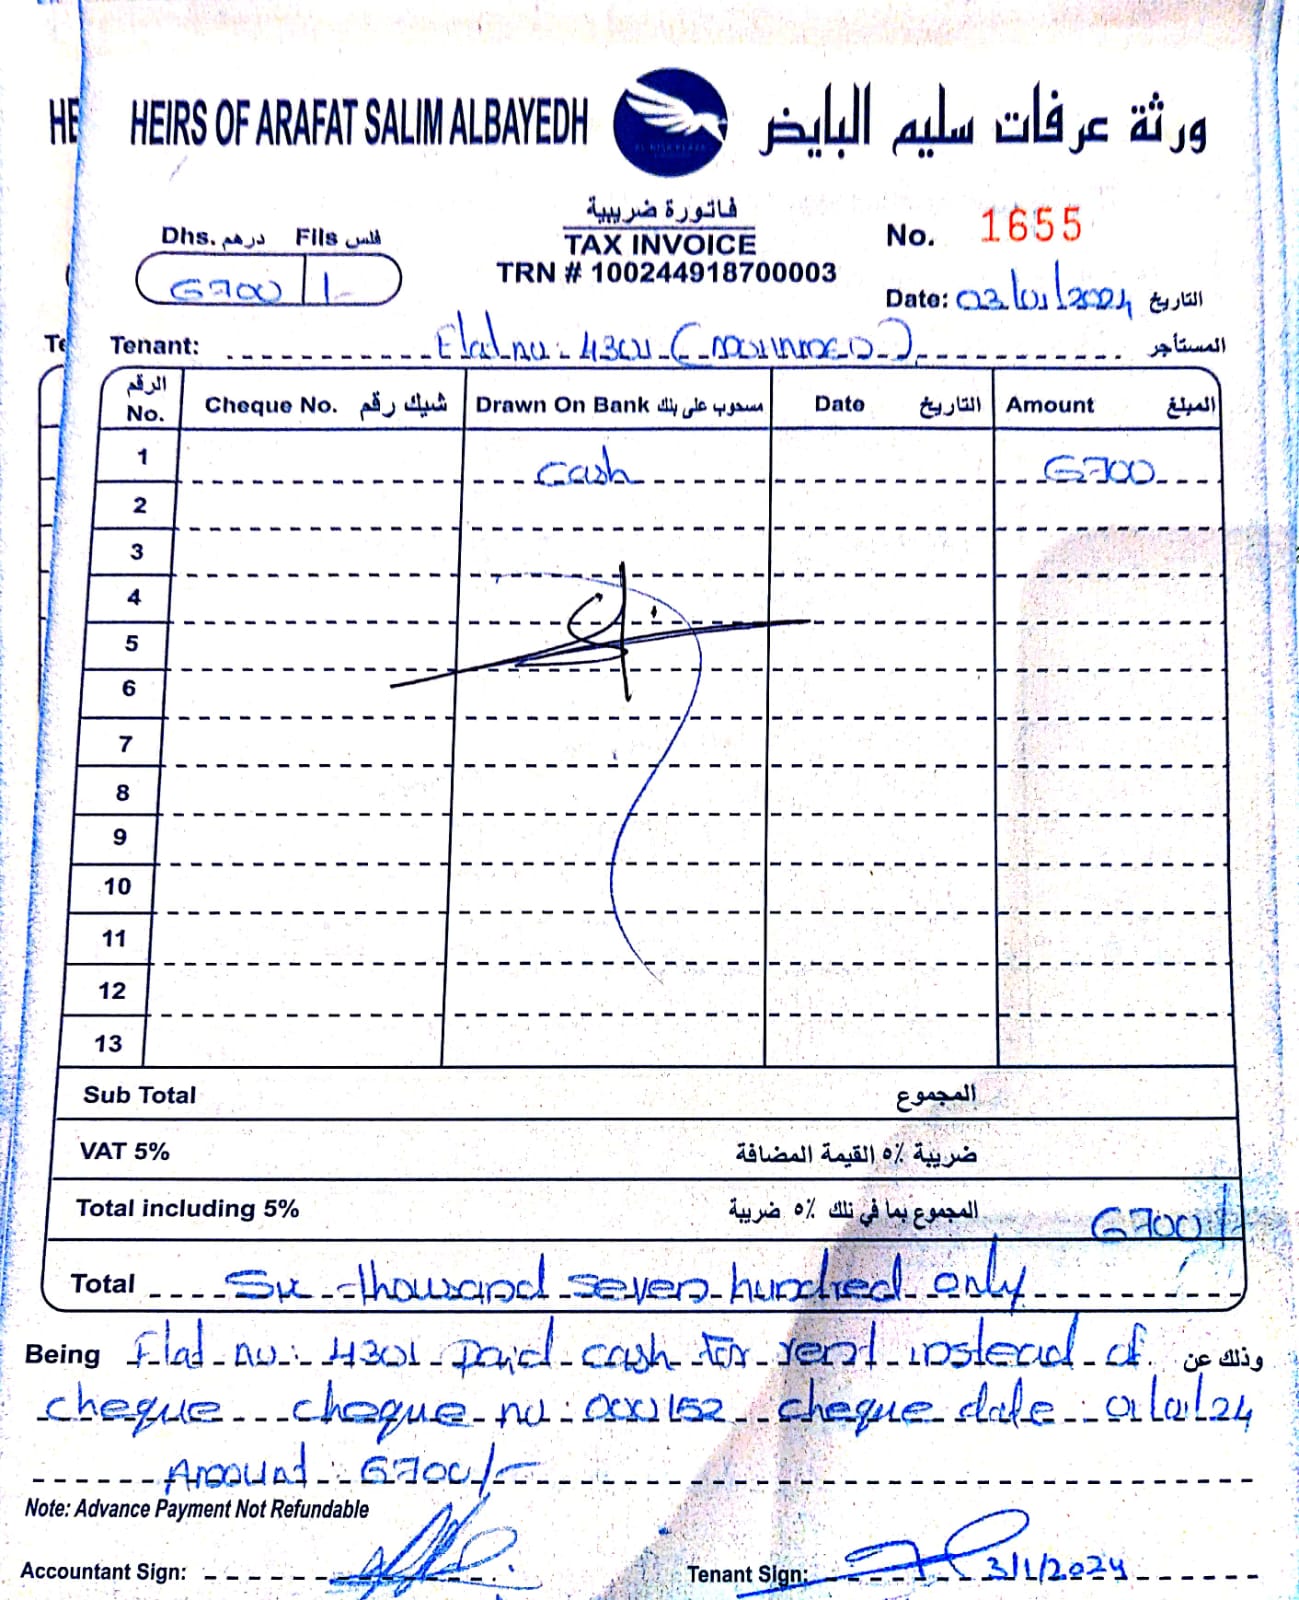 HE
HEIRS OF ARAFAT SALIM ALBAYEDH
ورثة عرفات سليم البايض
فاتورة ضريبية
TAX INVOICE
TRN # 100244918700003
Dhs. درهم Fils فلس
6700 /-
No. 1655
Date: 03/01/2024 التاريخ
Te
Tenant: Flat no: 4301 المستأجر
الرقم No. Cheque No. شيك رقم Drawn On Bank مسحوب على بنك Date التاريخ Amount المبلغ
1 Cash 6700
2
3
4
5
6
7
8
9
10
11
12
13
Sub Total المجموع
VAT 5% ضريبة ٥٪ القيمة المضافة
Total including 5% المجموع بما في تلك ٥٪ ضريبة 6700/
Total Six thousand seven hundred only
Being Flat no: 4301 paid cash for rent instead of وذلك عن
cheque cheque no: 000152 cheque date: 01/01/24
Amount: 6700/-
Note: Advance Payment Not Refundable
Accountant Sign: Tenant Sign: 3/1/2024